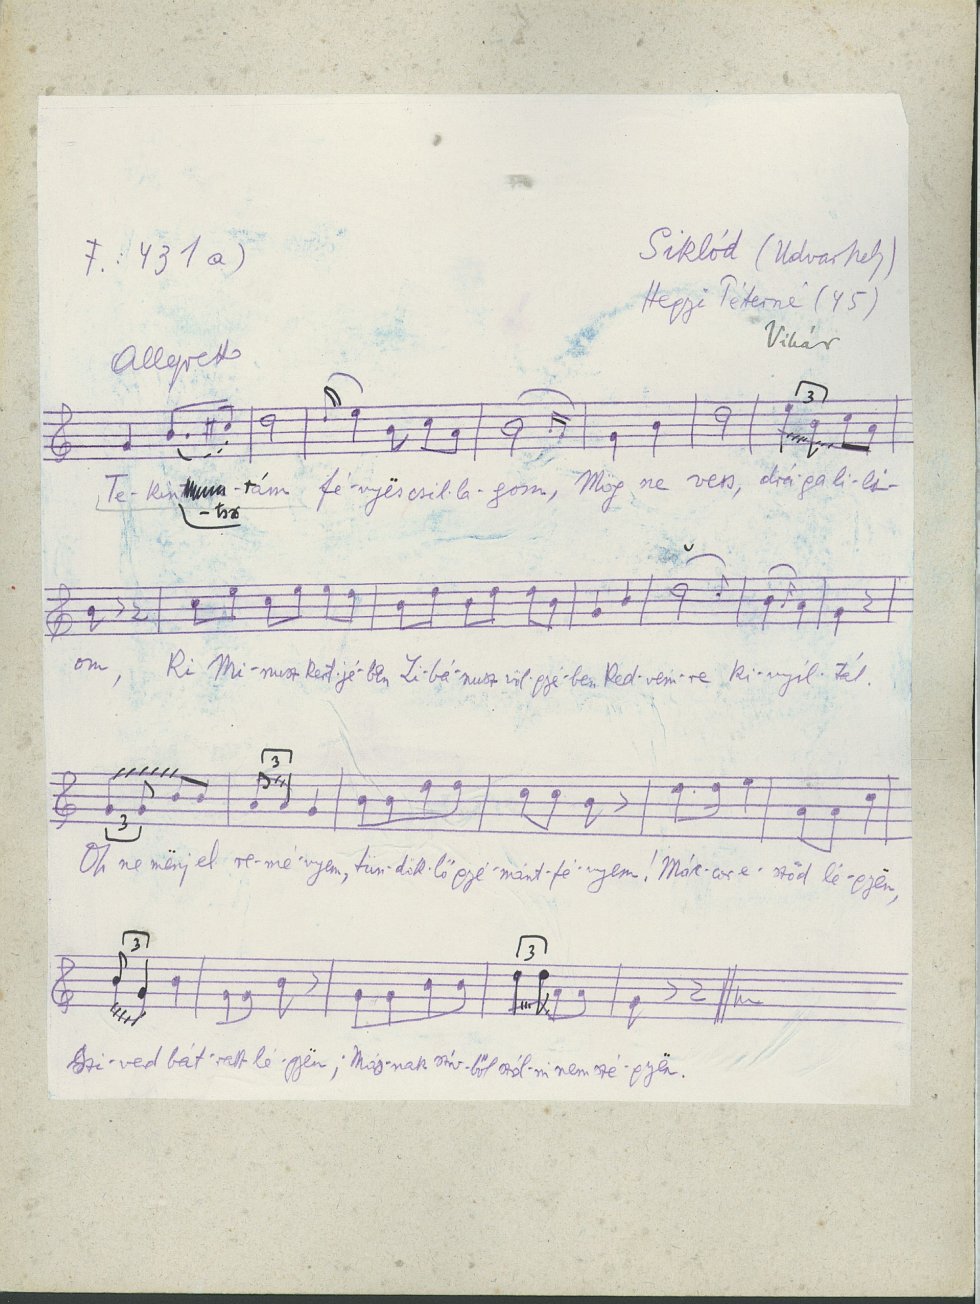 F. 431 a)
Siklód (Udvarhely)
Hegyi Péterné (45)
Vikár
Allegretto
3
Te-kin -tám fé-nyës csil-la-gom, Mög ne vess, drá-ga li-li-
-tsz
om, Ki Mi-nusz kert-jé-bën Li-bá-nusz völ-gyé-ben Ked-vem-re ki-nyíl-tál.
3
3
Oh ne mënj el re-mé-nyem, tün-dök-lő gyé-mánt-fé-nyem! Mák-cor e- szöd lé-gyën,
3
3
Szi-ved bát-rabb lé-gyën; Más-nak szív-ből szól-ni nem szé-gyën.